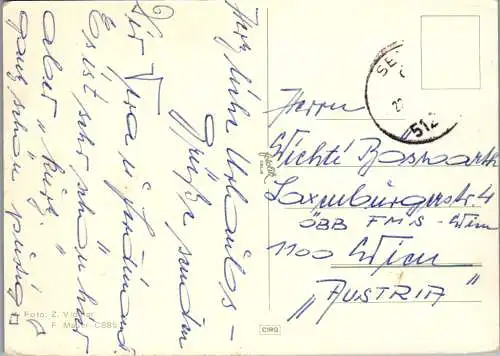 Herzliche Urlaubs-
Grüße senden
Wir Vera u. Ferdinand.
Es ist sehr schön hier
aber "kurz"
ganz schön
Foto: Z. Vi
F. Ma C885
CIRQ
SE
512
Herrn
Wichti Bosnarth
Laxenburgerstr. 4
ÖBB FMS - Wien
1100 Wien
"AUSTRIA"